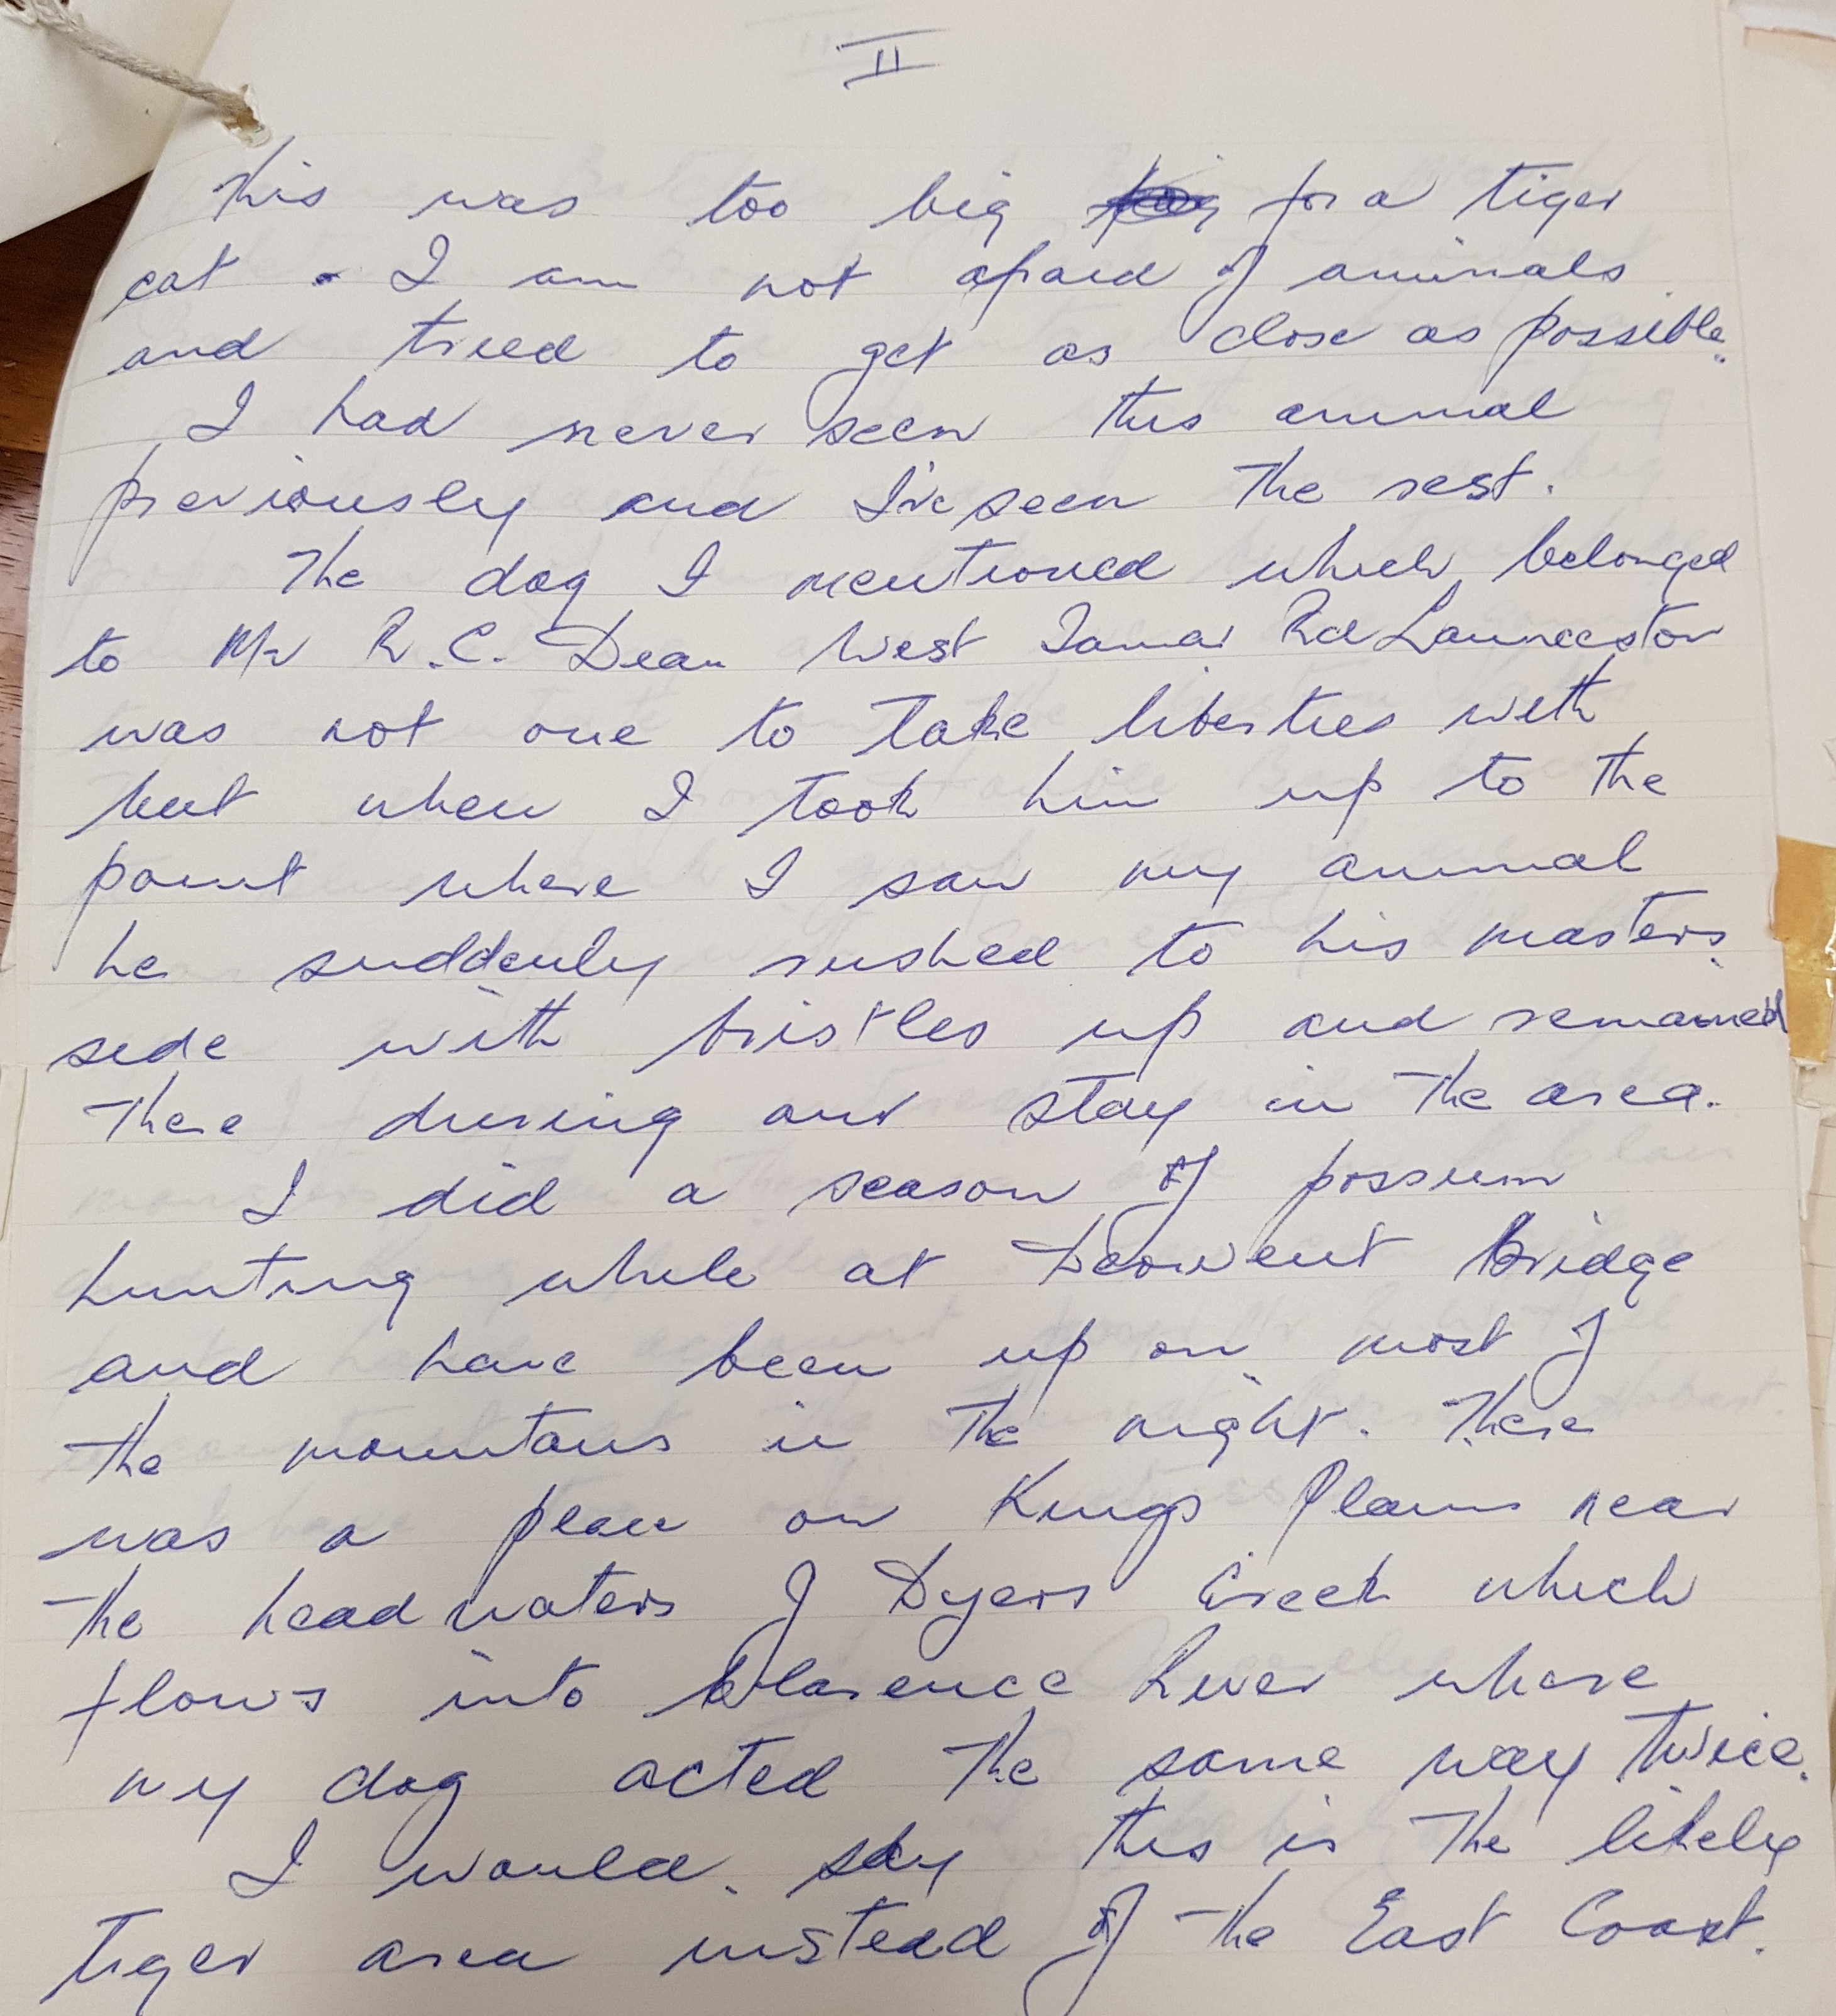 II
This was too big for a tiger
cat. I am not afraid of animals
and tried to get as close as possible.
I had never seen this animal
previously and I've seen the rest.
The dog I mentioned which belonged
to Mr R.C. Dean West Tamar Rd Launceston
was not one to take liberties with
but when I took him up to the
point where I saw my animal
he suddenly rushed to his masters
side with bristles up and remained
there during our stay in the area.
I did a season of possum
hunting while at Derwent Bridge
and have been up on most of
the mountains in the night. There
was a place on Kings Plains near
the head waters of Dyers Creek which
flows into Clarence River where
my dog acted the same way twice.
I would say this is the likely
tiger area instead of the East Coast.